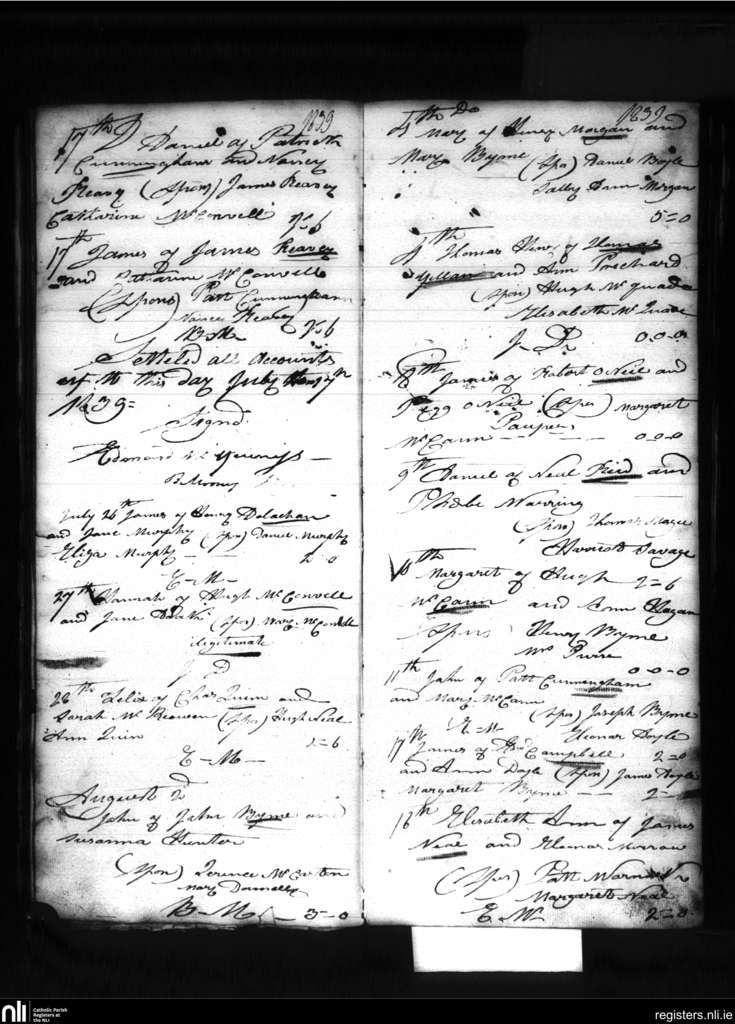 1839
17th D Daniel of Patrick
Cunningham and Nancy
Reavy (Spons) James Reavey
Catharine McConvell 2s6
17th James of James Reavey
and Catharine McConvell
(Spons) Patt Cunningham
Nancy Reavey
B M 2s6
Setteled all accounts
up to this day July 17th
1839=
Signd
Edmond
B Mooney
July 26th James of Henry Dolaghan
and Jane Murphy (Spon) Daniel Murphy
Eliza Murphy - - 2 0
E-M-
27th Hannah of Hugh McConvell
and Jane (Spos) Mary McConvell
illegitimate
J D
28th Felix of Chas Quinn and
Sarah McKeown (Spos) Hugh Neal
Ann Quinn 2=6
E-M-
August 2d
John of John Byrne and
Susanna Hunter
(Spon) Terence McCarten
Mary Donnelly
B-M - 3=0
1839
4th Do
Mary of Henry Morgan and
Mary Byrne (Spo) Daniel Boyle
Sally Ann Morgan
5=0
4th Thomas Henry of Thomas
and Ann Prichard
(Spon) Hugh McQuade
Elisabeth McQuade
J. D. 0-0-0
8th James of Robert O Neil and
Peggy O Neil (Spos) Margaret
Paupers
McCann - - - 0-0-0
9th Daniel of Neal and
Phebe Warring
(Spon) Thomas Magee
Harriet Savage
10th 2=6
Margaret of Hugh
McCann and Ann Hagan
Spons Henry Byrne
Mrs
11th John of Patt Cunningham 0-0-0
and Mary McCann
(Spo) Joseph Byrne
E-M- Eleonar Doyle
17th 2=0
James of Campbell
and Ann Doyle (Spon) James Doyle
Margaret Byrne - - 2-
18th Elisabeth Ann of James
Neal and Eleonar Morrow
(Spos) Patt
Margaret Neal
E M- 2=0
nli
Catholic Parish
Registers at
the NLI
registers.nli.ie